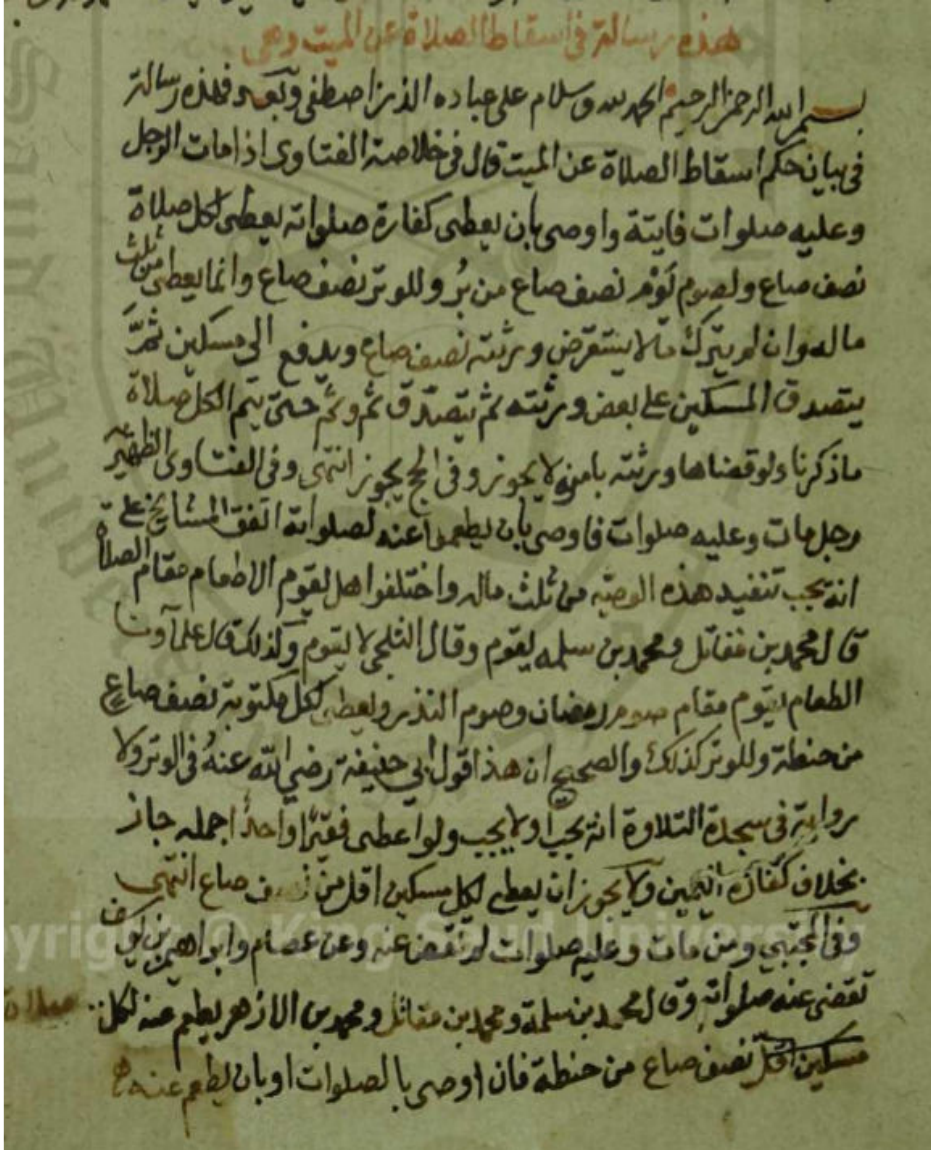 هذه رسالة في اسقاط الصلاة عن الميت وهي
بسم الله الرحمن الرحيم الحمد لله وسلام على عباده الذين اصطفى وبعد فهذه رسالة
في بيان حكم اسقاط الصلاة عن الميت قال في خلاصة الفتاوى اذا مات الرجل
وعليه صلوات فايتة واوصى بان يعطى كفارة صلواته يعطى لكل صلاة
نصف صاع ولصوم يوم نصف صاع من بُر وللوتر نصف صاع وانما يعطى من ثلث
ماله وان لم يترك مالا يستقرض ورثته نصف صاع ويدفع الى مسكين ثمَّ
يتصدق المسكين على بعض ورثته ثم يتصدق ثم وثم حتى يتم الكل صلاة
ما ذكرنا ولو قضاها ورثته بامره لا يجوز وفي الحج يجوز انتهى وفي الفتاوى الظهيرية
رجل مات وعليه صلوات فاوصى بان يطعموا عنه لصلواته اتفق المشايخ على
انه يجب تنفيد هذه الوصية من ثلث ماله واختلفوا هل يقوم الاطعام مقام الصلاة
قال محمد بن مقاتل ومحمد بن سلمه يقوم وقال الثلجي لا يقوم وكذلك قال علماؤنا
الطعام يقوم مقام صوم رمضان وصوم النذر ويعطى لكل مكتوبة نصف صاع
من حنطة وللوتر كذلك والصحيح ان هذا قول ابي حنيفة رضي الله عنهُ في الوتر ولا
رواية في سجدة التلاوة انه يجب او لا يجب ولو اعطى فقيرًا واحدًا جمله جاز
بخلاف كفارة اليمين ولا يجوز ان يعطى لكل مسكين اقل من نصف صاع انتهى
وفي المجتبى ومن مات وعليه صلوات لم تقض عنه وعن عصام وابراهيم بن يوسف
تقضى عنه صلواته وقال محمد بن سلمة ومحمد بن مقاتل ومحمد بن الازهر يطعم عنه لكل صلاة
مسكين اقل نصف صاع من حنطة فان اوصى بالصلوات او بان يطعم عنه
Copyright © King Saud University